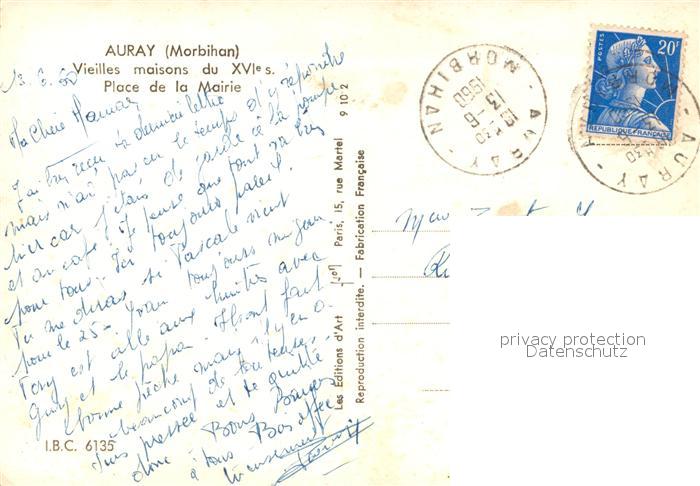 AURAY (Morbihan)
Vieilles maisons du XVIe s.
Place de la Mairie
13. 6. 60
Ma Chère Maman
J'ai bien reçu ta dernière lettre
mais n'ai pas eu le temps d'y répondre
hier car j'étais de garde à la pompe
et au café. Je pense que tout va bien
pour tous. Ici toujours pareil.
Tu me diras si Pascale vient
pour le 25 - toujours
Tony est allé aux huîtres avec
Guy et le papa. Ils ont fait
bonne pêche mais il y en a
beaucoup de
suis pressée et te quitte
donc Bons Baisers
à tous Bons
I.B.C. 6135
Les Editions d'Art Jof Paris, 15, rue Martel 9 10 2
Reproduction interdite. — Fabrication Française
AURAY
MORBIHAN
13 - 6
1960
POSTES
20F
REPUBLIQUE FRANÇAISE
AURAY
privacy protection
Datenschutz